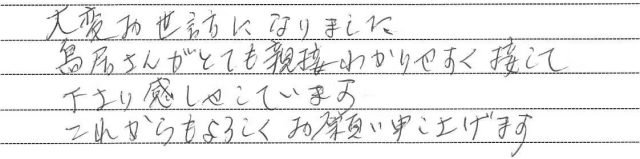 大変お世話になりました
鳥居さんがとても親接わかりやすく接して
下さり感しゃしています
これからもよろしくお願い申し上げます